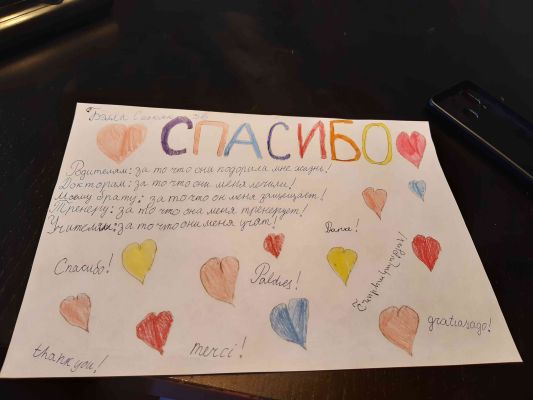 Бэлла
СПАСИБО
Родителям: за то что они подорила мне жизнь!
Докторам: за то что они меня лечили!
Моему брату: за то что он меня защищает!
Тренеру: за то что она меня тренерует!
Учителям: за то что они меня учат!
Спасибо!
Paldies!
thank you!
merci!
gratias ago!